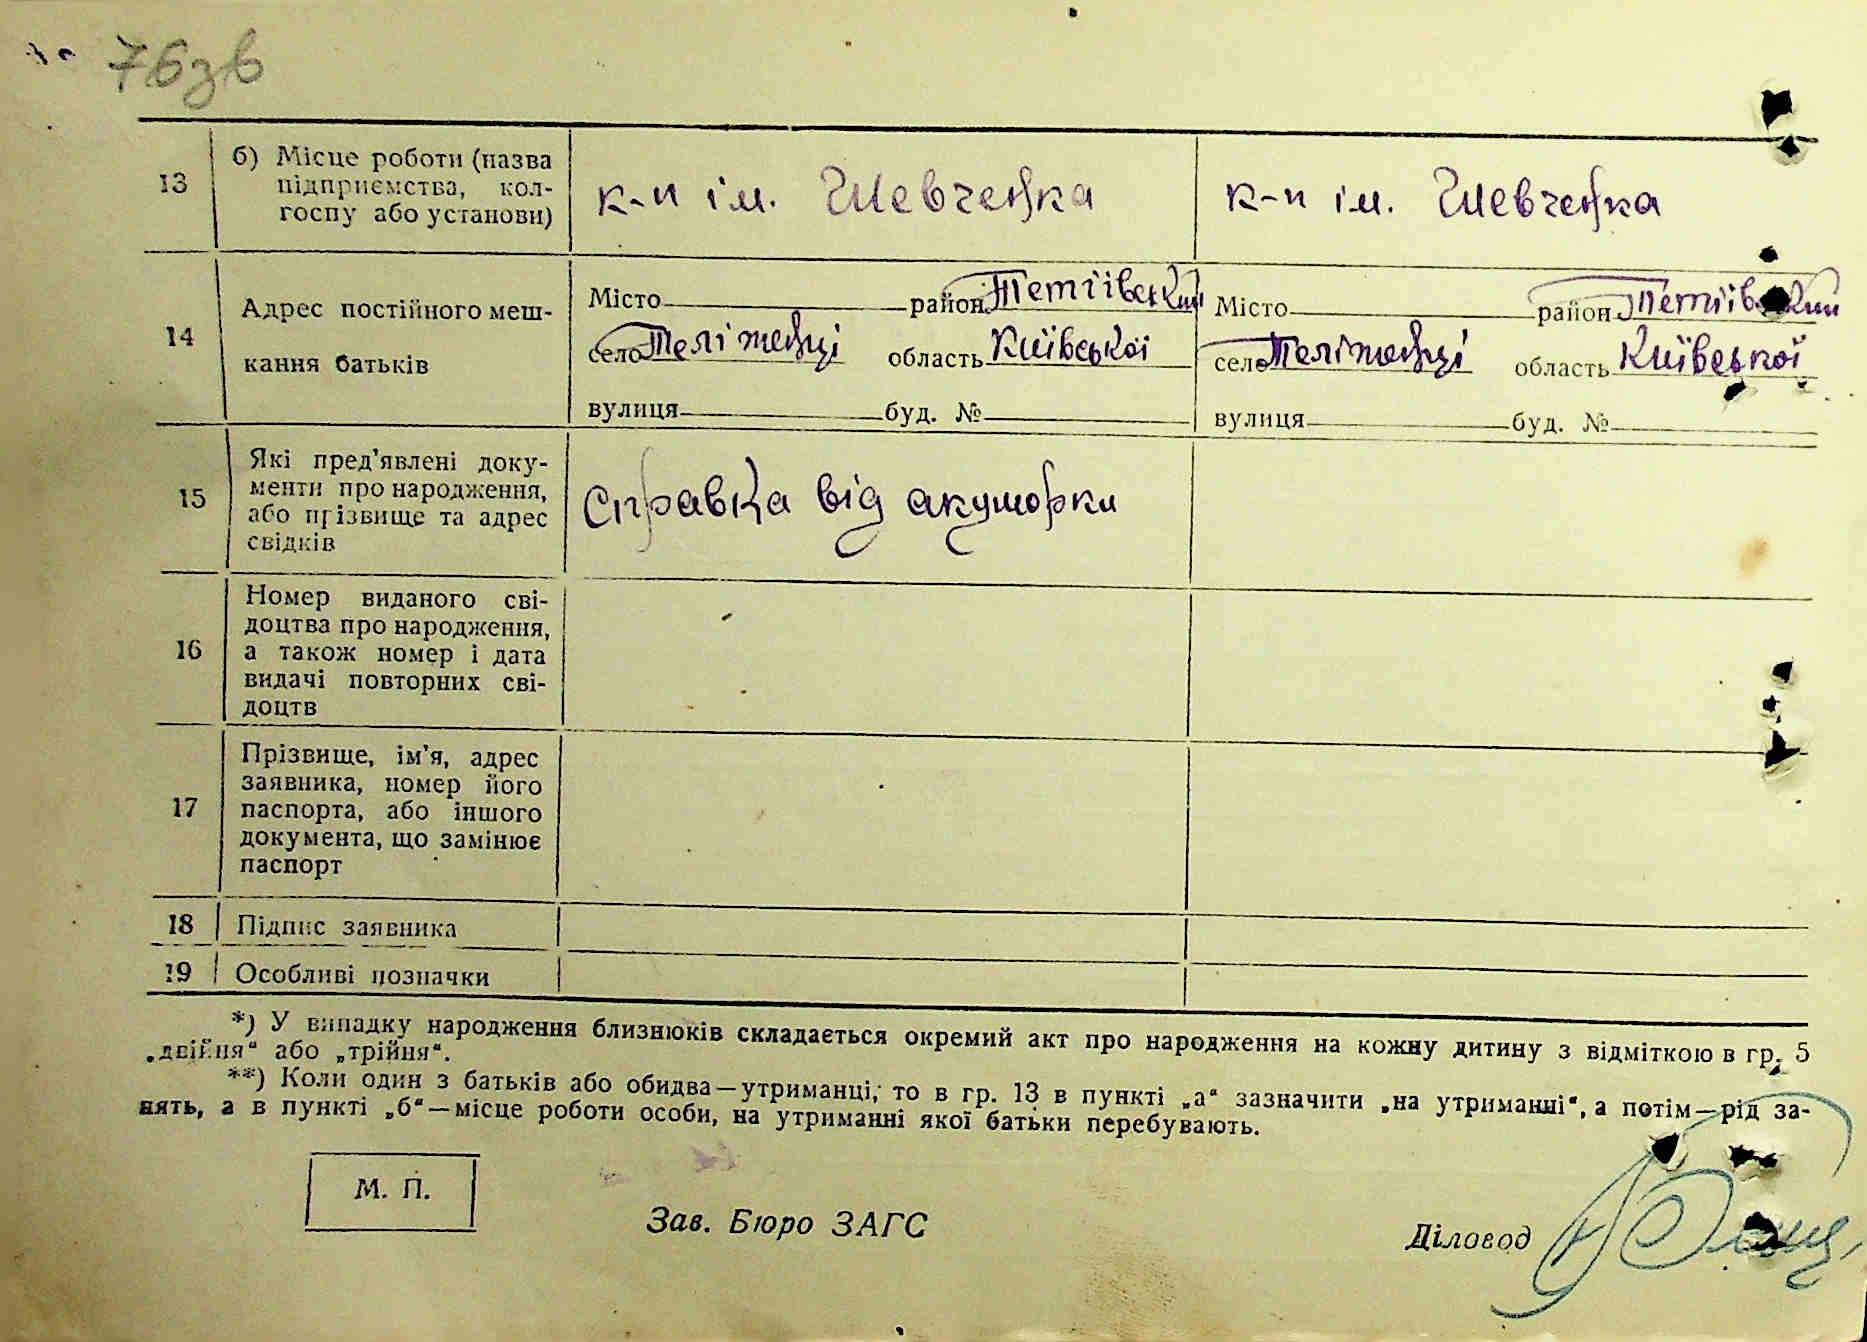 76зв
13 б) Місце роботи (назва підприємства, кол-госпу або установи) к-п ім. Шевченка к-п ім. Шевченка
14 Адрес постійного меш-кання батьків
Місто район Тетіївський Місто район Тетіївський
село Теліженці область Київської село Теліженці область Київської
вулиця буд. № вулиця буд. №
15 Які пред'явлені доку-
менти про народження,
або прізвище та адрес
свідків
Справка від акушорки
16 Номер виданого сві-
доцтва про народження,
а також номер і дата
видачі повторних сві-
доцтв
17 Прізвище, ім'я, адрес
заявника, номер його
паспорта, або іншого
документа, що замінює
паспорт
18 Підпис заявника
19 Особливі позначки
*) У випадку народження близнюків складається окремий акт про народження на кожну дитину з відміткою в гр. 5
„двійня“ або „трійня“.
**) Коли один з батьків або обидва—утриманці, то в гр. 13 в пункті „а“ зазначити „на утриманні“, а потім—рід за-
нять, а в пункті „б“—місце роботи особи, на утриманні якої батьки перебувають.
М. П.
Зав. Бюро ЗАГС Діловод